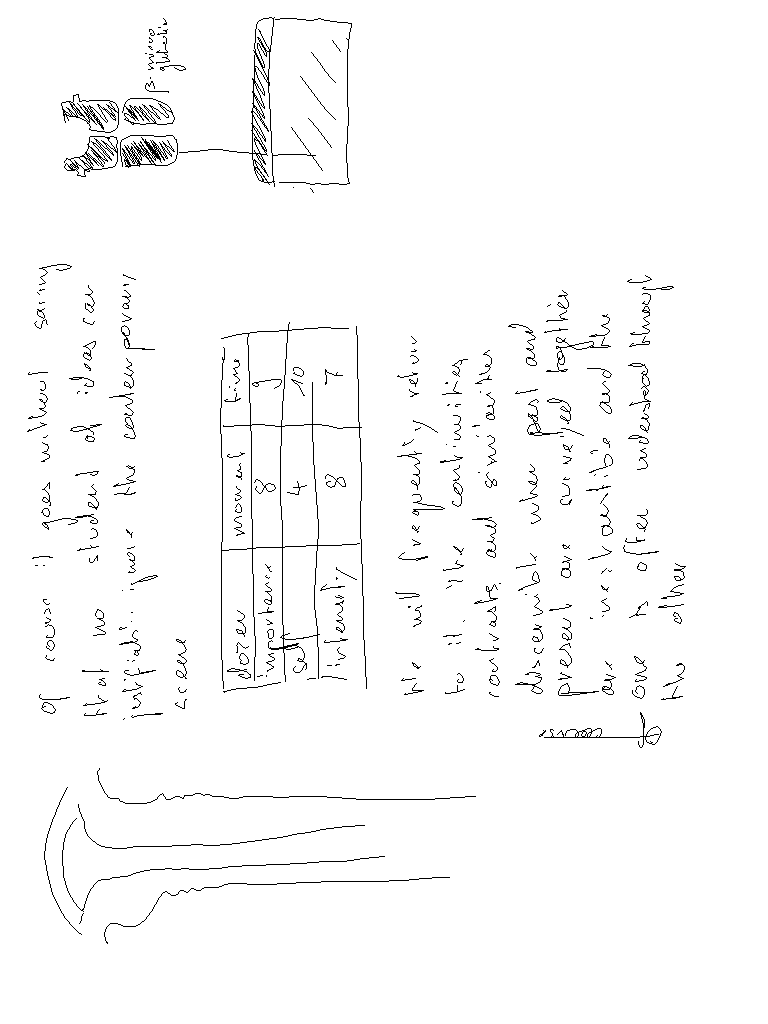 Of course it goes without saying
that no student of ideas can
justifiably ignore the contemporary
scene
dozen moment time
importance 8 9
self 4 10
intensity 8 7
We will frequently return
to it. The continuities
contrasts and similarities
discernible when past and
present are surveyed together
are inexhaustible and the
one is often understood through
the other
β-micro
globulin